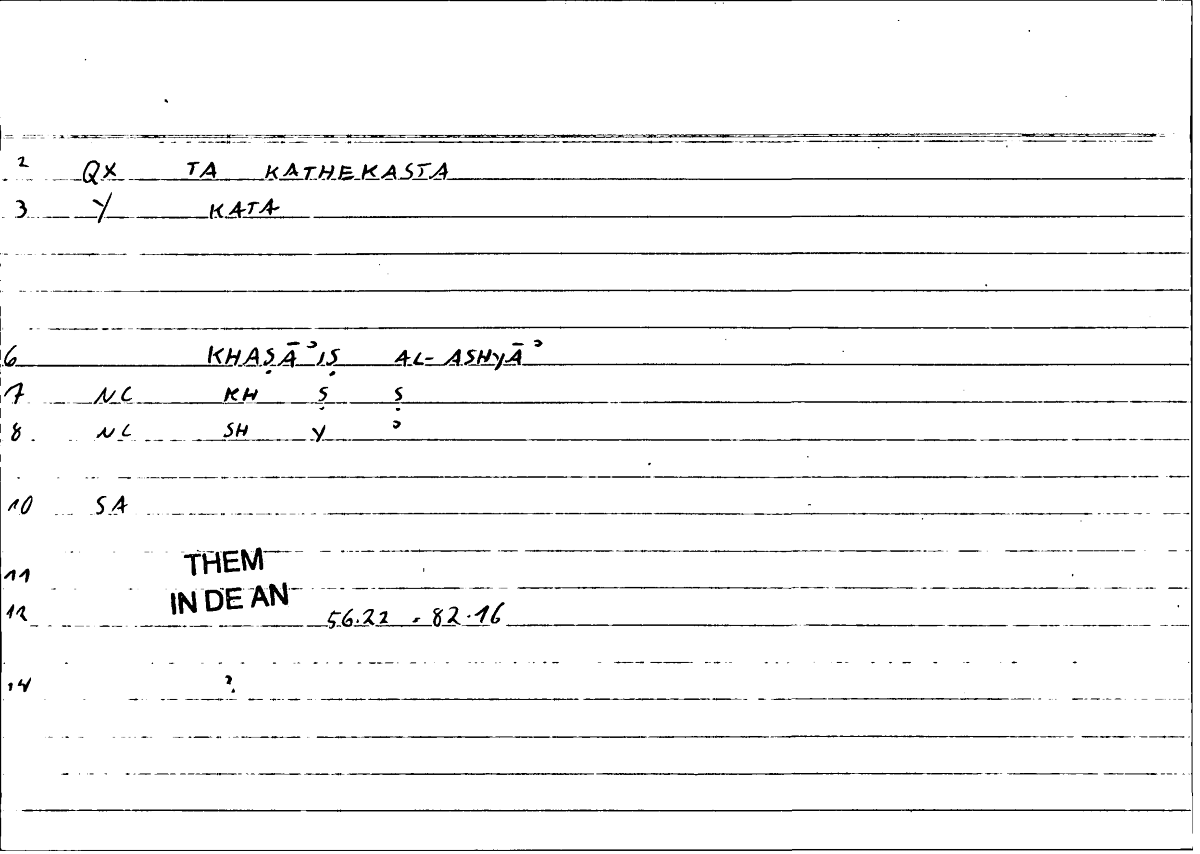 2 QX TA KATHEKASTA
3 Y KATA
6 KHAṢĀʾIṢ AL-ASHYĀʾ
7 NC KH Ṣ Ṣ
8 NC SH Y ʾ
10 SA
11 THEM
12 IN DE AN 56.22 = 82.16
14 ?